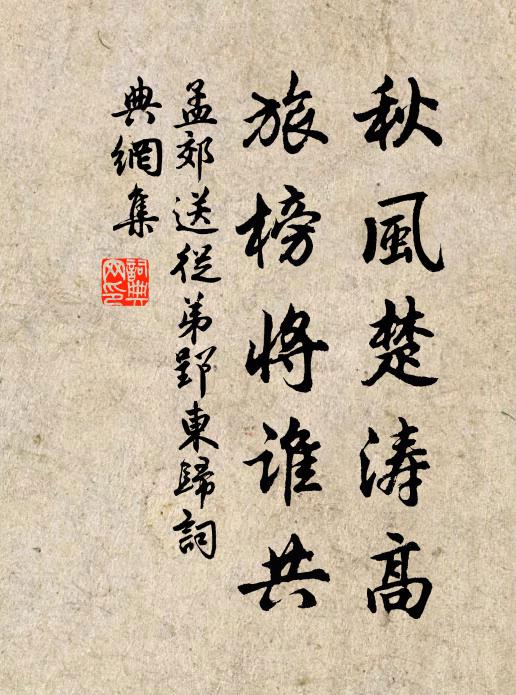 秋風楚涛高
旅榜將谁共
孟郊送從弟郢東歸詞
典網集
詞典网印